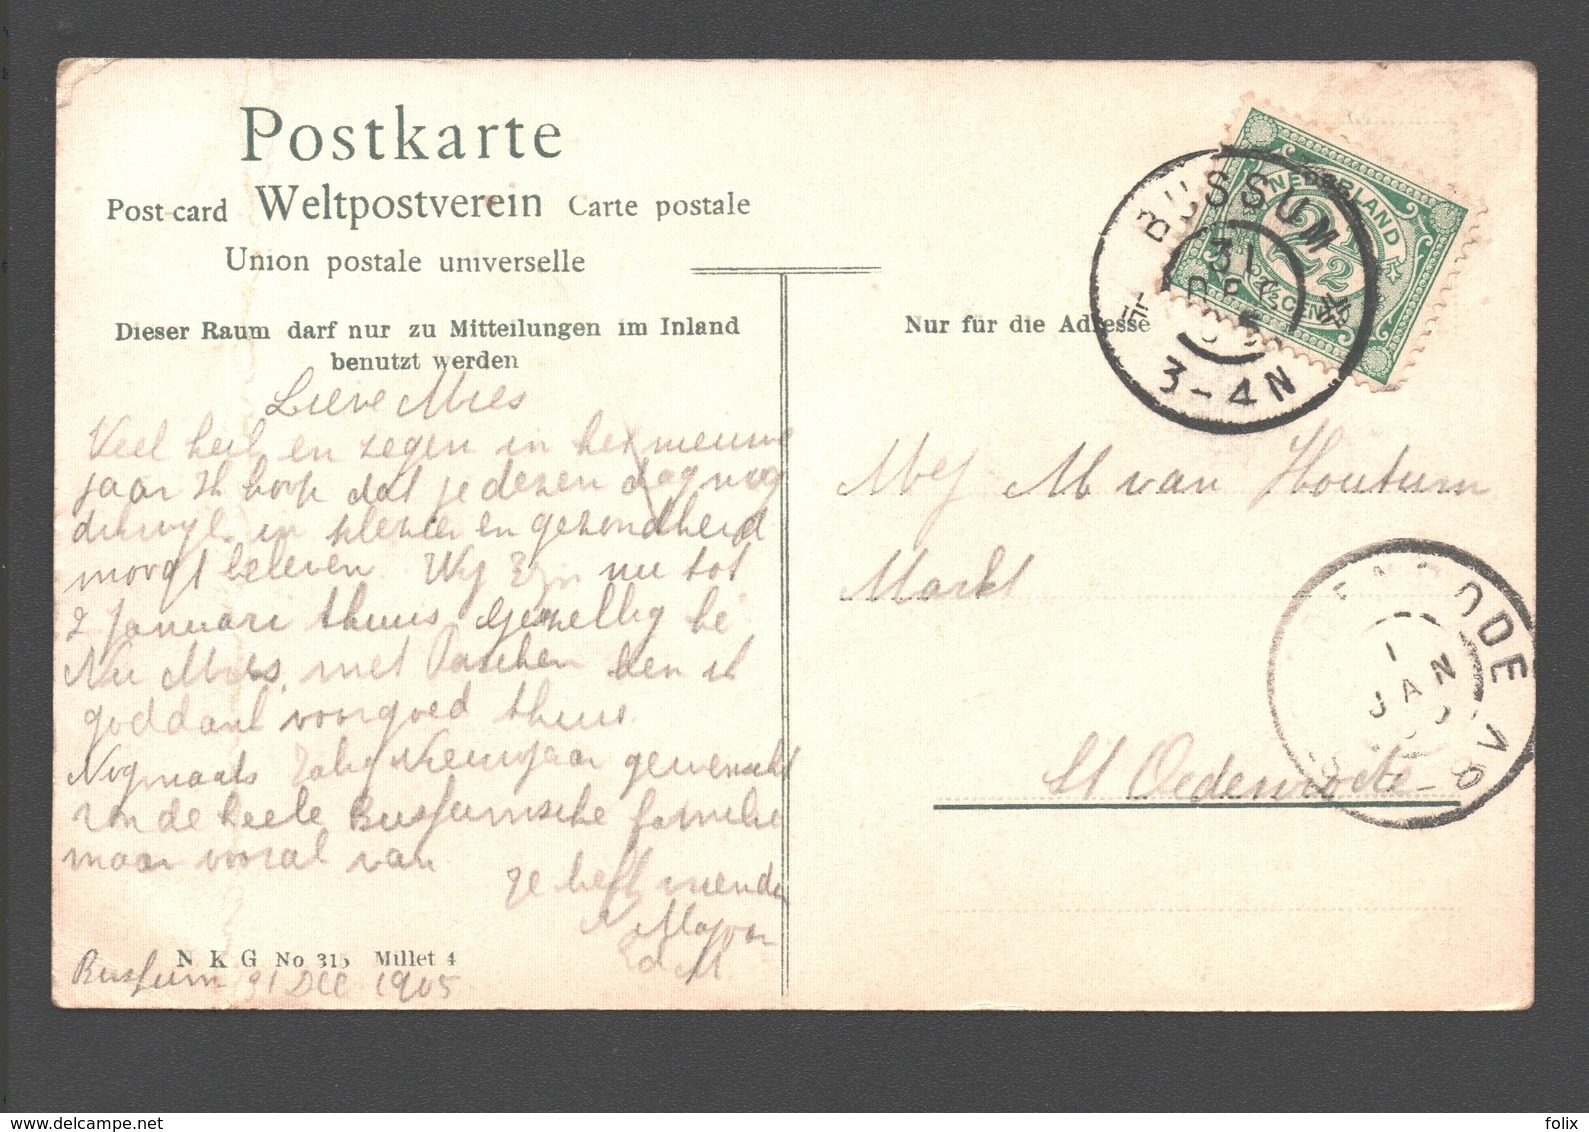 Postkarte
Post-card Weltpostverein Carte postale
Union postale universelle
Dieser Raum darf nur zu Mitteilungen im Inland
benutzt werden
Lieve Mies
Veel heil en zegen in het nieuwe
jaar Ik hoop dat je dezen dag nog
dikwijls in plezier en gezondheid
moogt beleven Wij zijn nu tot
2 Januari thuis gezellig hé
Nu Mies, met Paschen ben ik
goddank voorgoed thuis.
Nogmaals Zalig Nieuwjaar gewenscht
van de heele Bussumsche familie
maar vooral van
Je heil vriendin
Ed M
N K G No 315 Millet 4
Bussum 31 Dec 1905
Nur für die Adresse
NEDERLAND
2 1/2
2½ CENT
BUSSUM
31
DEC
05
3-4N
Mej M van Houtum
Markt
St Oedenrode
DENRODE
1
JAN
7-8V
www.delcampe.net
folix